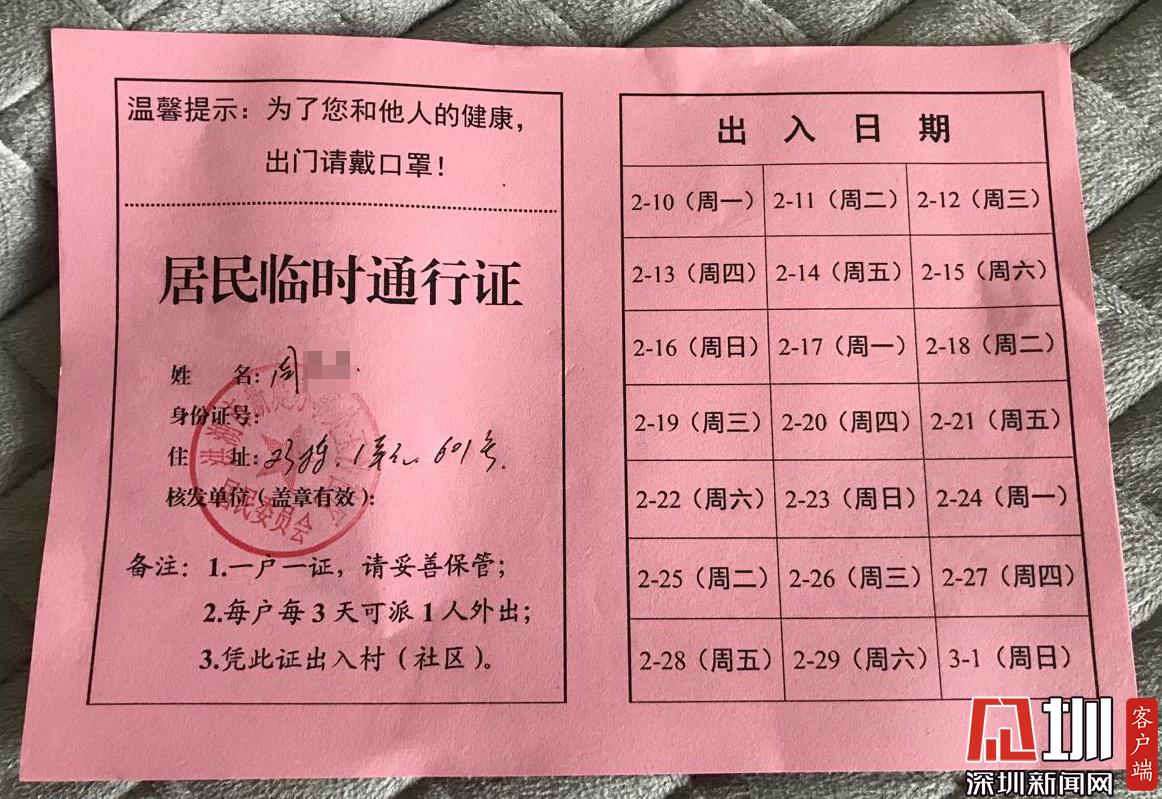 温馨提示：为了您和他人的健康，
出门请戴口罩！
居民临时通行证
姓 名：周
身份证号：
住 址： 1单元 601号.
核发单位（盖章有效）：
居民委员会
备注：1.一户一证，请妥善保管；
2.每户每3天可派1人外出；
3.凭此证出入村（社区）。
出入日期
2-10（周一） 2-11（周二） 2-12（周三）
2-13（周四） 2-14（周五） 2-15（周六）
2-16（周日） 2-17（周一） 2-18（周二）
2-19（周三） 2-20（周四） 2-21（周五）
2-22（周六） 2-23（周日） 2-24（周一）
2-25（周二） 2-26（周三） 2-27（周四）
2-28（周五） 2-29（周六） 3-1（周日）
圳
客户端
深圳新闻网